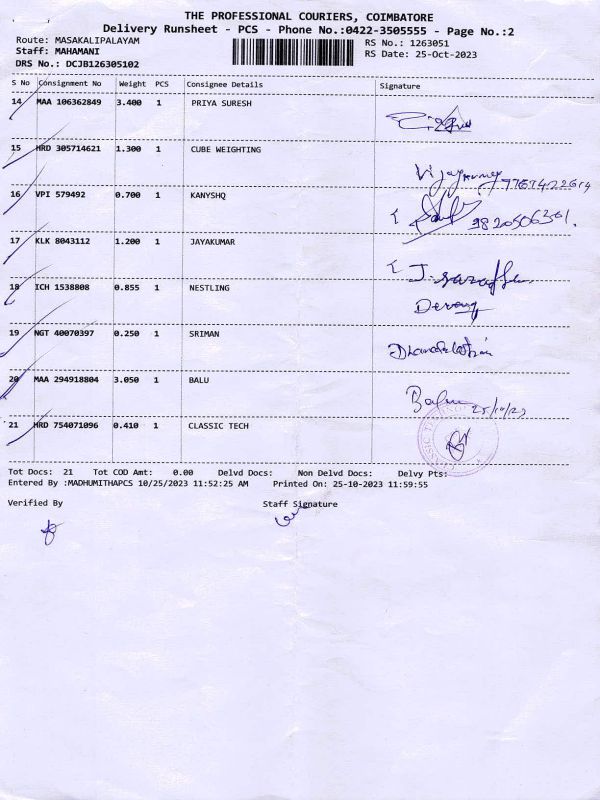 THE PROFESSIONAL COURIERS, COIMBATORE
Delivery Runsheet - PCS - Phone No.:0422-3505555 - Page No.:2
Route: MASAKALIPALAYAM RS No.: 1263051
Staff: MAHAMANI RS Date: 25-Oct-2023
DRS No.: DCJB126305102
S No Consignment No Weight PCS Consignee Details Signature
14 MAA 106362849 3.400 1 PRIYA SURESH
15 HRD 305714621 1.300 1 CUBE WEIGHTING
16 VPI 579492 0.700 1 KANYSHQ
17 KLK 8043112 1.200 1 JAYAKUMAR
18 ICH 1538808 0.855 1 NESTLING
Devang
19 NGT 40070397 0.250 1 SRIMAN
20 MAA 294918804 3.050 1 BALU
25/10/23
21 HRD 754071096 0.410 1 CLASSIC TECH
Tot Docs: 21 Tot COD Amt: 0.00 Delvd Docs: Non Delvd Docs: Delvy Pts:
Entered By :MADHUMITHAPCS 10/25/2023 11:52:25 AM Printed On: 25-10-2023 11:59:55
Verified By Staff Signature